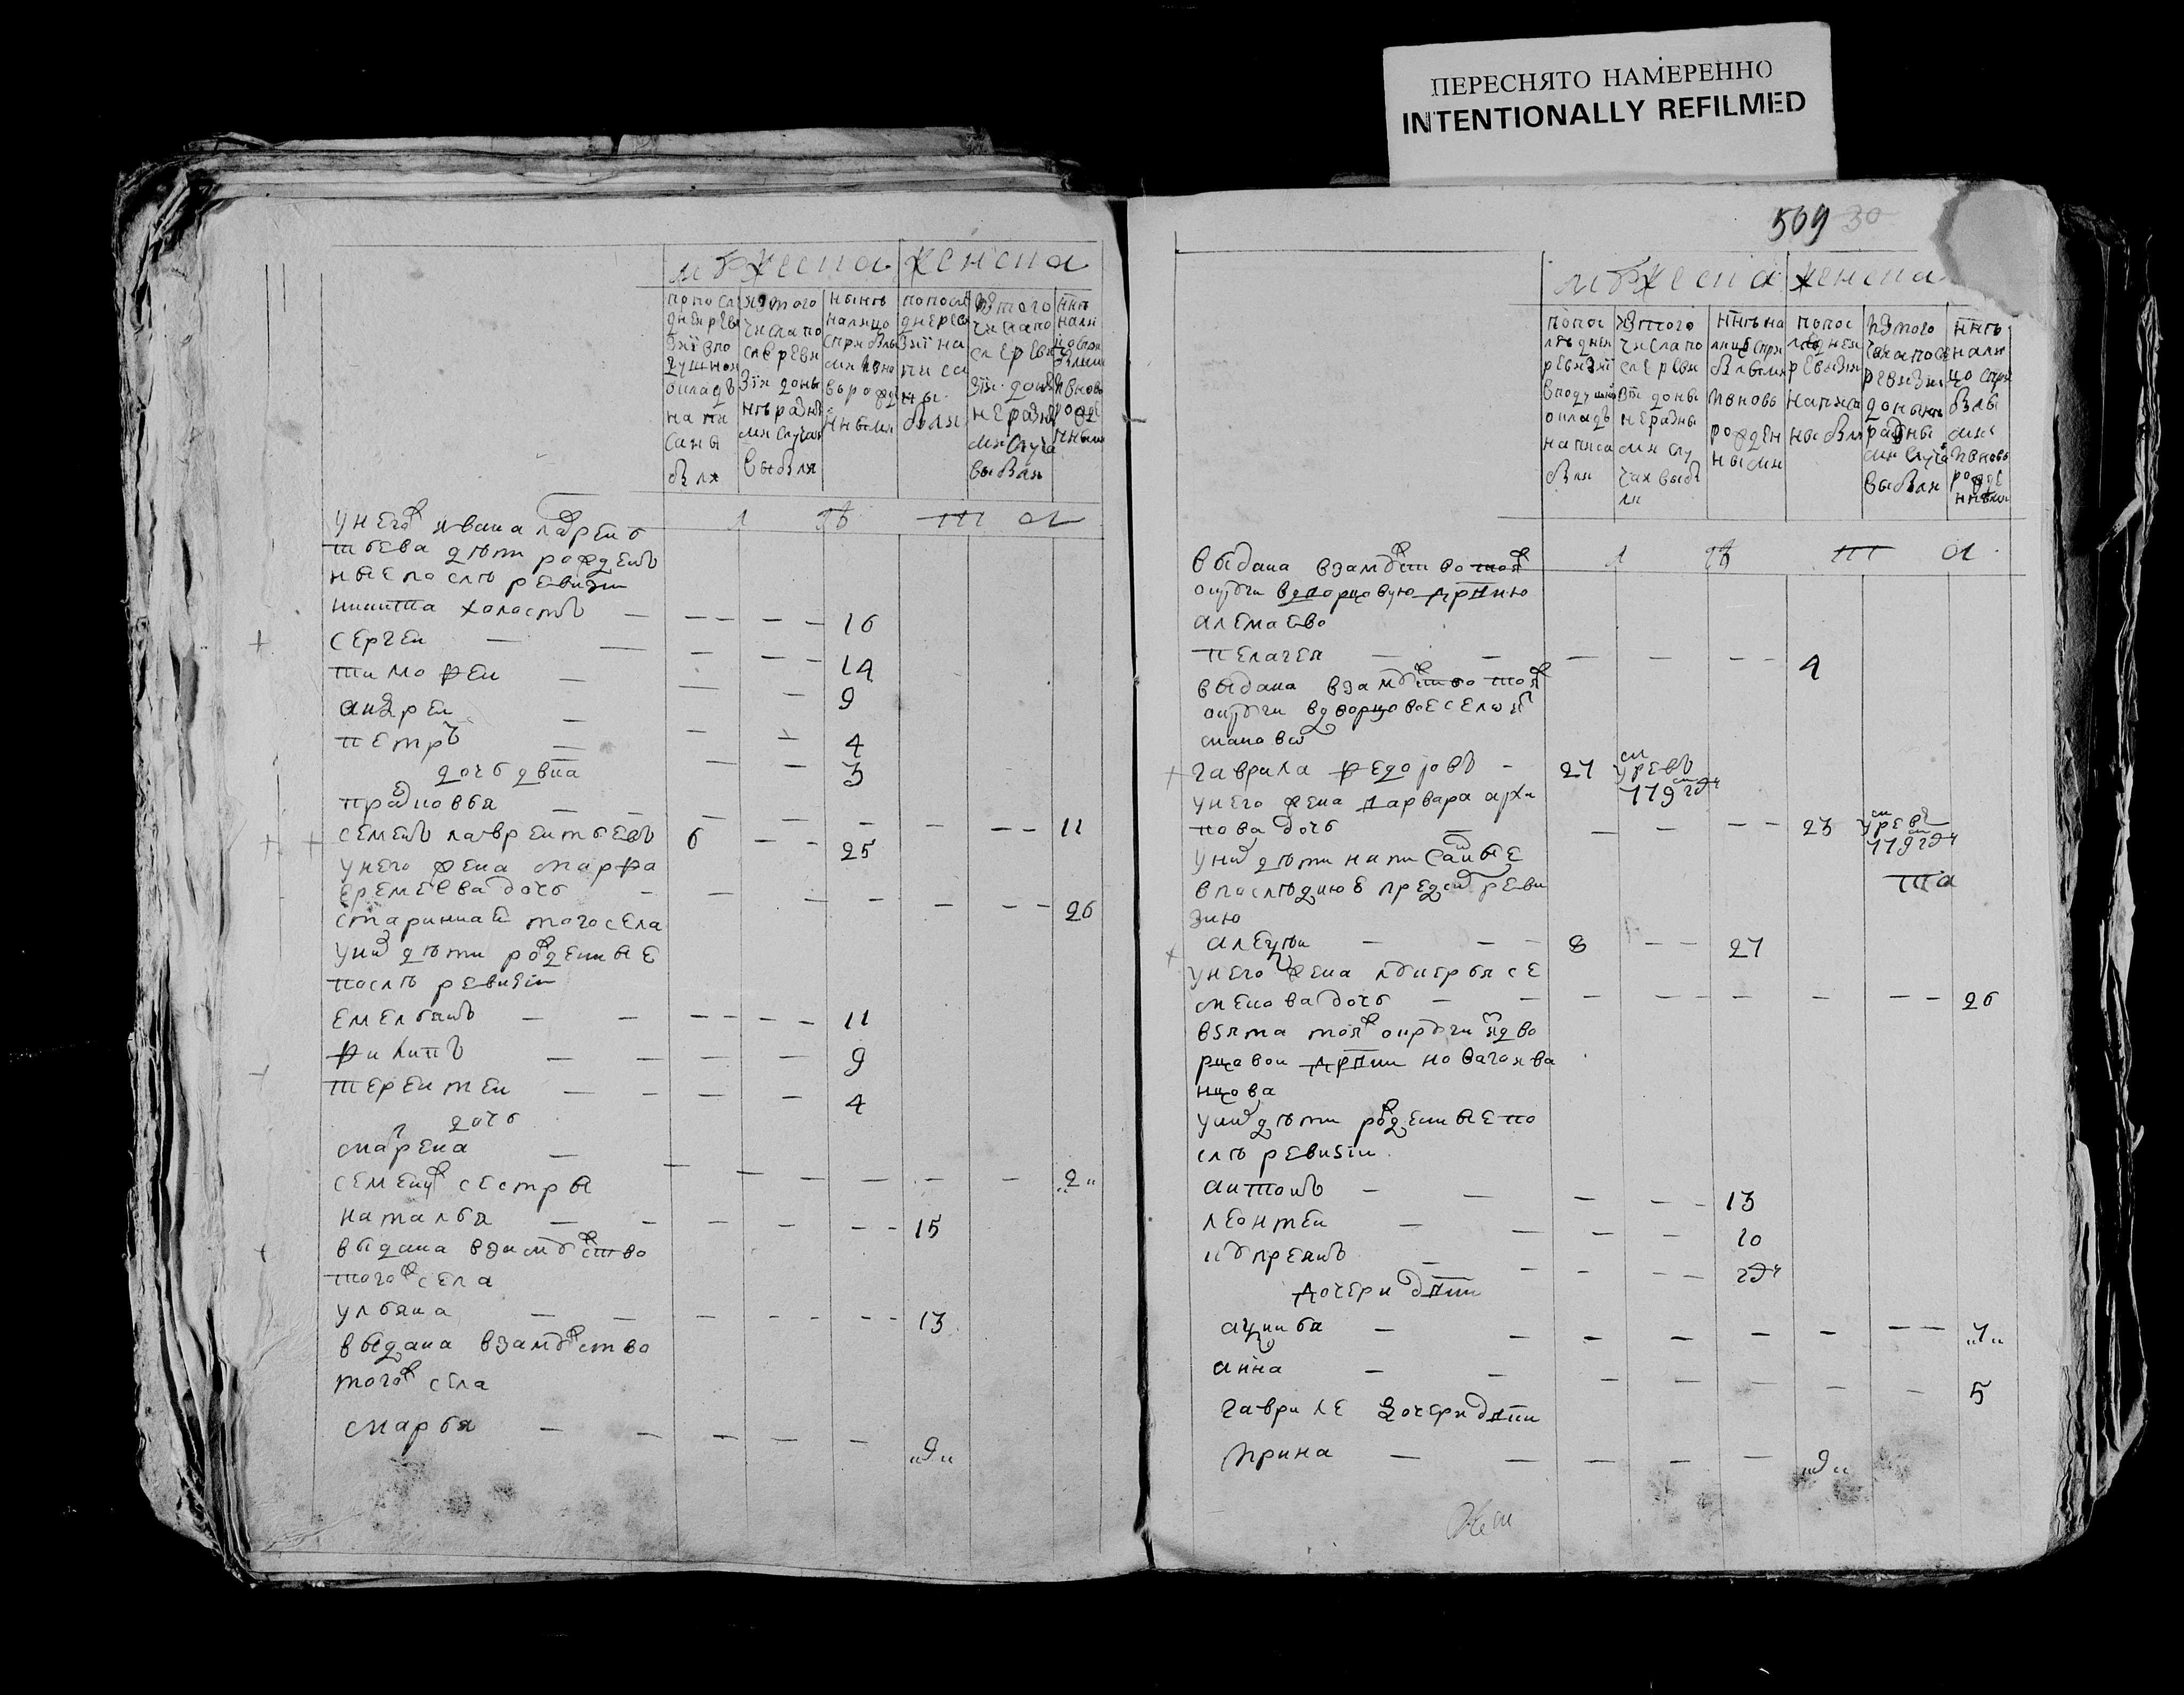 ПЕРЕСНЯТО НАМЕРЕННО
INTENTIONALLY REFILMED
509 30
мужеска женска
попосле
днеи реви
зїи впо
душном
окладѣ
напи
саны
были
изтого
числа по
сле реви
зїи доны
нѣ разны
ми случаи
выбыли
нынѣ
налицо
сприбылы
ми ивно
ворожде
нными
попосле
днереви
зїи на
писа
ны
были
изтого
числа по
сле реви
зїи доны
не разны
ми случа
выбыли
ннѣ
нали
уневож ивана лаврень
тьева дѣти рожденъ
ные после ревизии
никита холостъ — 16
сергеи — 14
тимофеи — 9
андреи — 4
петръ — 3
дочь двка
прасковья — 11
семенъ лаврентьевъ 6 — 25
унего жена марфа
еремеева дочь — 26
стариннаѧ тогосела
уних дѣти рожденные
после ревизїи
емельянъ — 11
филипъ — 9
терентеи — 4
дочь
марена — 2
семену сестры
наталья — 15
выдана взамужство
тогож села
ульяна — 13
выдана взамужство
тогож села
марья — 9
мужеска женска
попос
лѣднеи
ревизїи
вподушно
окладѣ
написа
были
изтого
числапо
сле реви
зїи доны
не разны
ми слу
чаи выбы
ли
ннѣ на
лицо спри
былыми
ивновь
рожден
ными
попос
леднеи
ревизии
написа
ны были
изтого
числапосле
ревизии
доныне
разны
ми случа
выбыли
ннѣ
нали
цо спри
былы
ми
ивновь
рожде
нными
выдана взамужство тояж
округи вдворцовую дрвню
алемаево
пелагея — 4
выдана взамужство тояж
округи вдворцовое село
гаврила федоровъ — 27
унего жена варвара архи
пова дочь — 23
уних дѣти написанные
впоследнюю пред сим реви
зию
алеѯѣи — 8 — 27
унего жена лукерья се
менова дочь — 26
взята тояж округи издво
рцовои дрвни
уних дѣти рожденные по
слѣ ревизїи
антонъ — 13
леонтеи — 10
купреянъ — 2
дочери двки
аѯинья — 7
анна — 5
гавриле дочери двки
ирина — 9